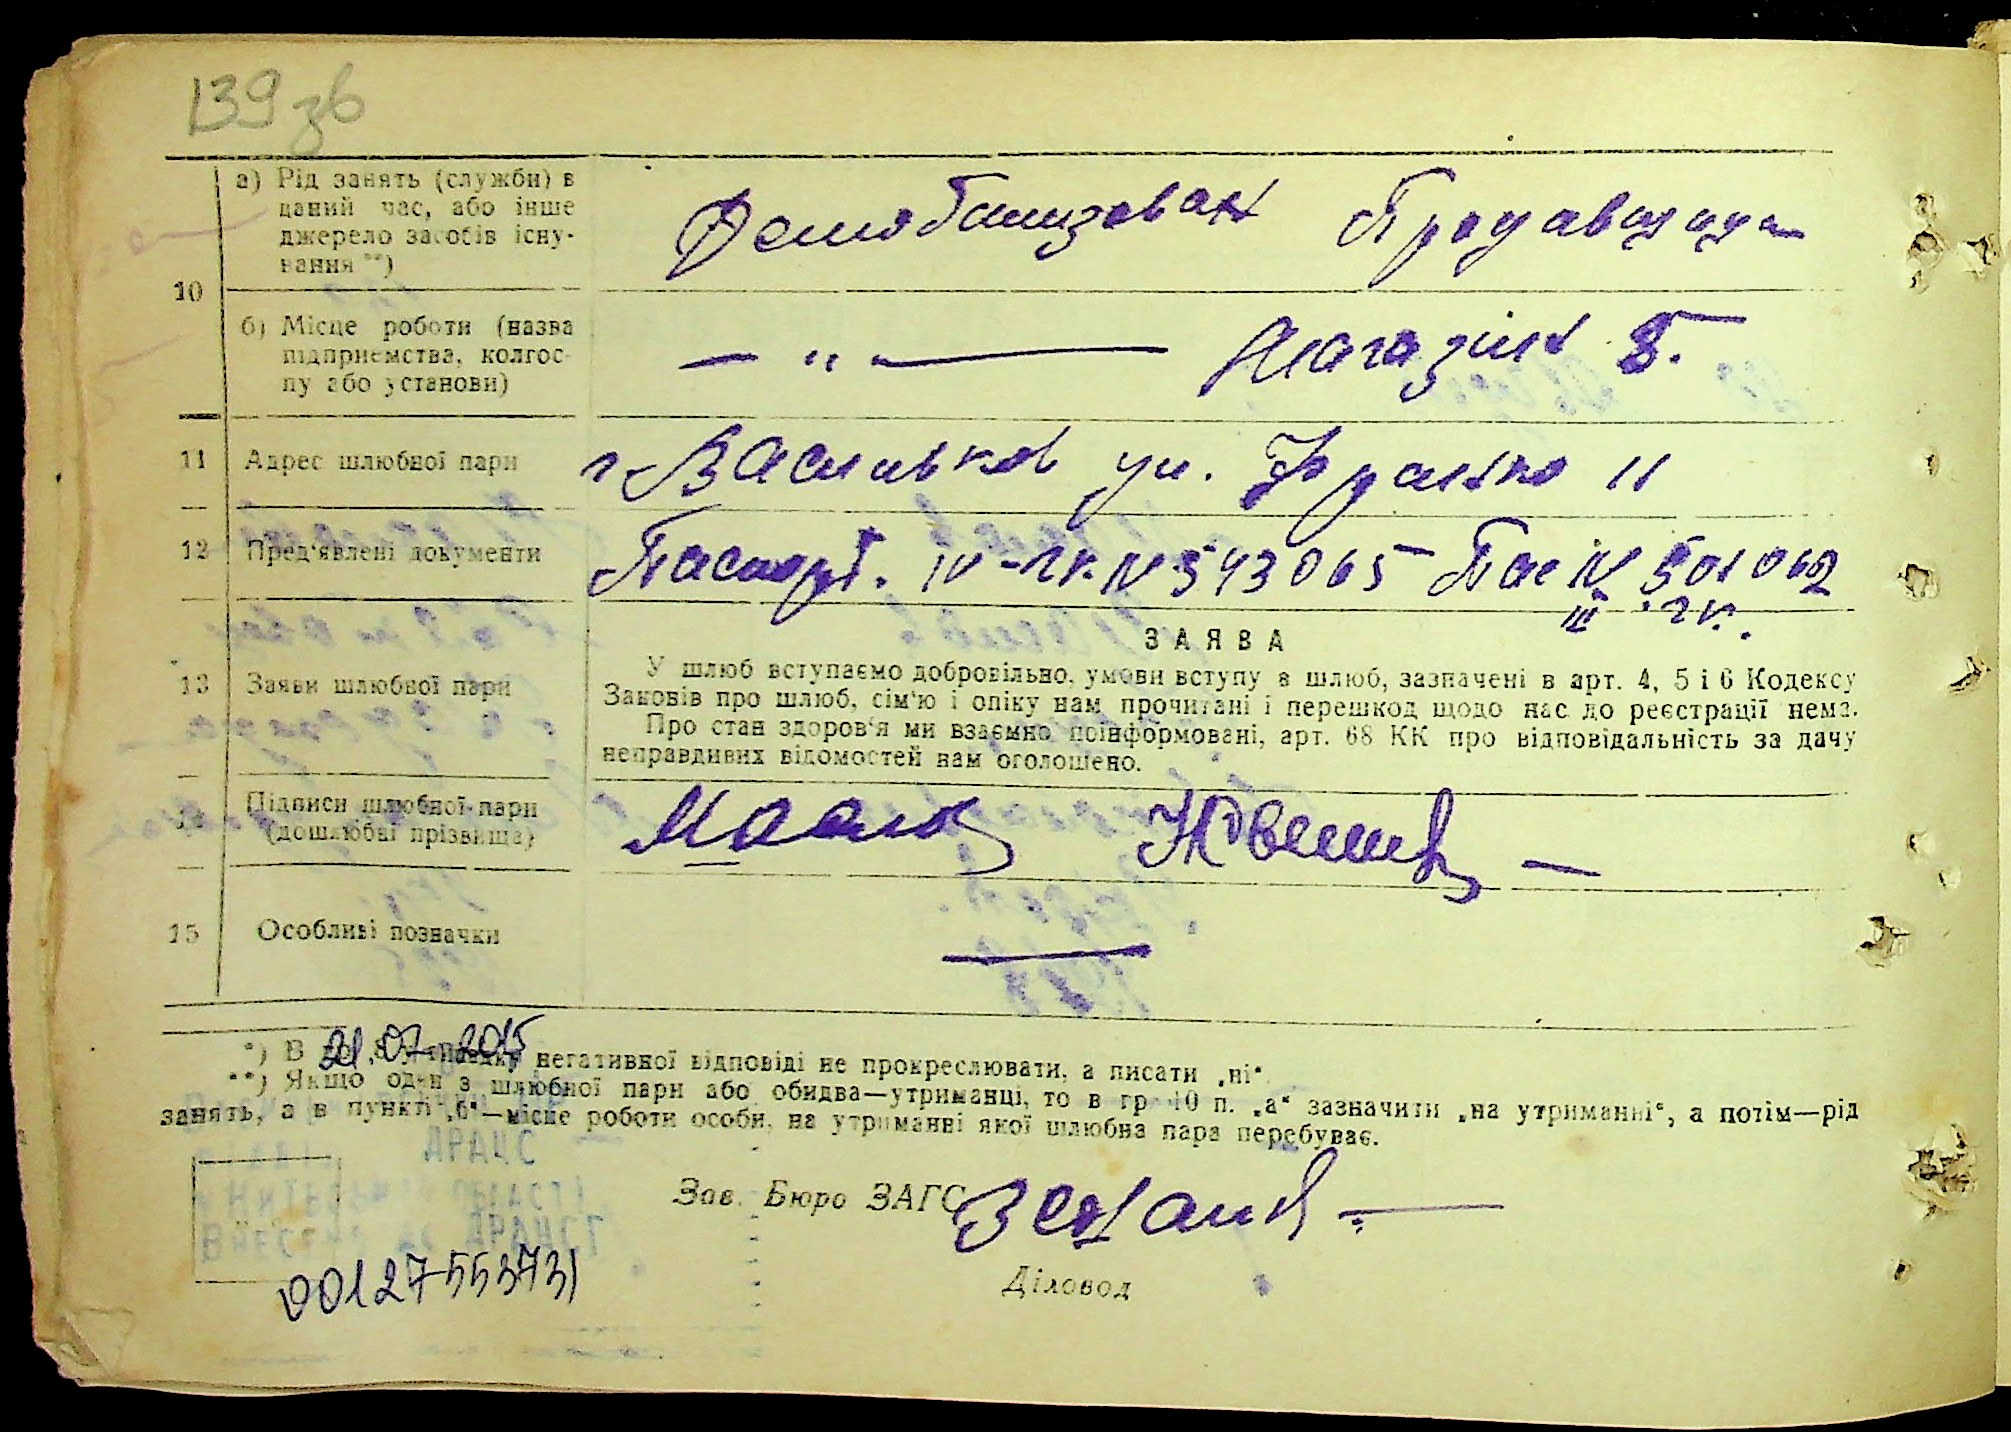 139 зв
а) Рід занять (служби) в
даний час, або інше
джерело засобів існу-
вання **)
Демобилизован Продавщица
10
б) Місце роботи (назва
підприємства, колгос-
пу або установи)
— " — Магазин 5.
11 Адрес шлюбної пари
г. Васильков ул. Франко 11
12 Пред'явлені документи
Паспорт. IV-ГК. N 543065 Пас IV 501062
III ГК.
ЗАЯВА
13 Заяви шлюбної пари
У шлюб вступаємо добровільно, умови вступу в шлюб, зазначені в арт. 4, 5 і 6 Кодексу
Законів про шлюб, сім'ю і опіку нам прочитані і перешкод щодо нас до реєстрації нема.
Про стан здоров'я ми взаємно поінформовані, арт. 68 КК про відповідальність за дачу
неправдивих відомостей нам оголошено.
Підписи шлюбної пари
(дошлюбні прізвища)
15 Особливі позначки
21.07.2015
*) В негативної відповіді не прокреслювати, а писати „ні“.
**) Якщо один з шлюбної пари або обидва—утриманці, то в гр. 10 п. „а“ зазначити „на утриманні“, а потім—рід
занять, а в пункті „б“—місце роботи особи, на утриманні якої шлюбна пара перебуває.
ДРАЦС
Внести до ДРАЦСГ
Зав. Бюро ЗАГС
00127553731
Діловод